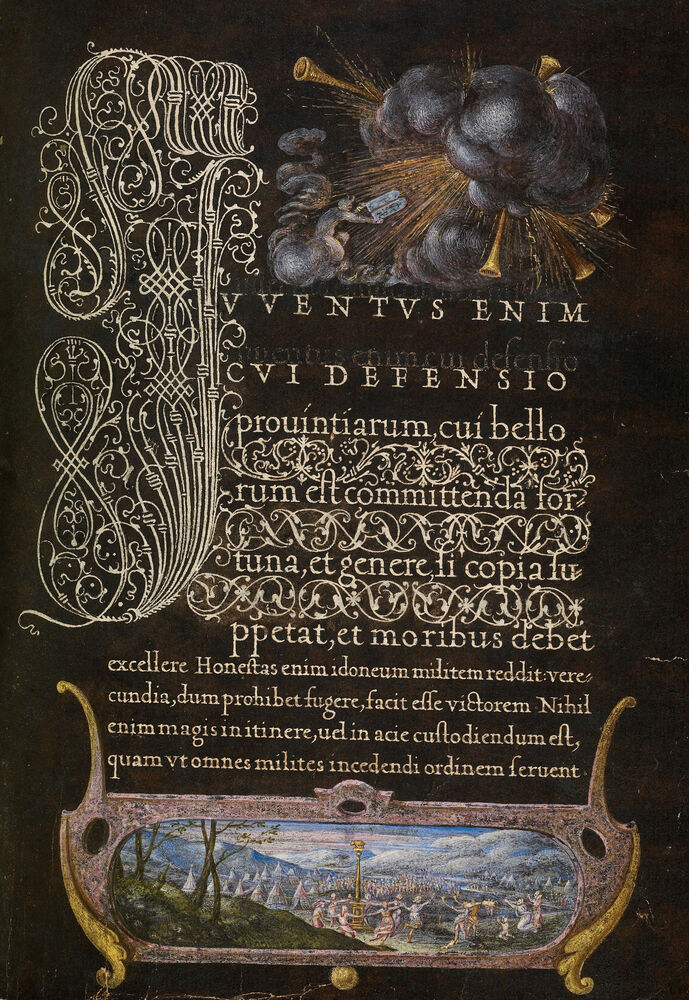 IVVENTVS ENIM
CVI DEFENSIO
prouintiarum, cui bello
rum eſt committenda for-
tuna, et genere, ſi copia ſu-
ppetat, et moribus debet
excellere Honeſtas enim idoneum militem reddit: vere-
cundia, dum prohibet fugere, facit eſſe victorem Nihil
enim magis in itinere, uel in acie cuſtodiendum eſt,
quam vt omnes milites incedendi ordinem ſeruent